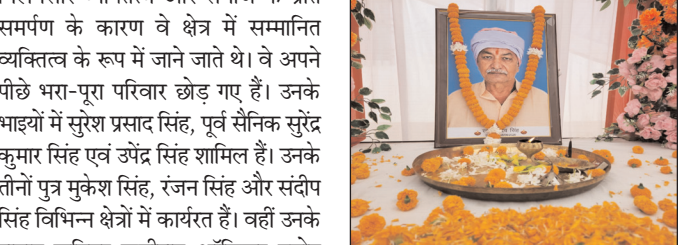 समर्पण के कारण वे क्षेत्र में सम्मानित
व्यक्तित्व के रूप में जाने जाते थे। वे अपने
पीछे भरा-पूरा परिवार छोड़ गए हैं। उनके
भाइयों में सुरेश प्रसाद सिंह, पूर्व सैनिक सुरेंद्र
कुमार सिंह एवं उपेंद्र सिंह शामिल हैं। उनके
तीनों पुत्र मुकेश सिंह, रंजन सिंह और संदीप
सिंह विभिन्न क्षेत्रों में कार्यरत हैं। वहीं उनके